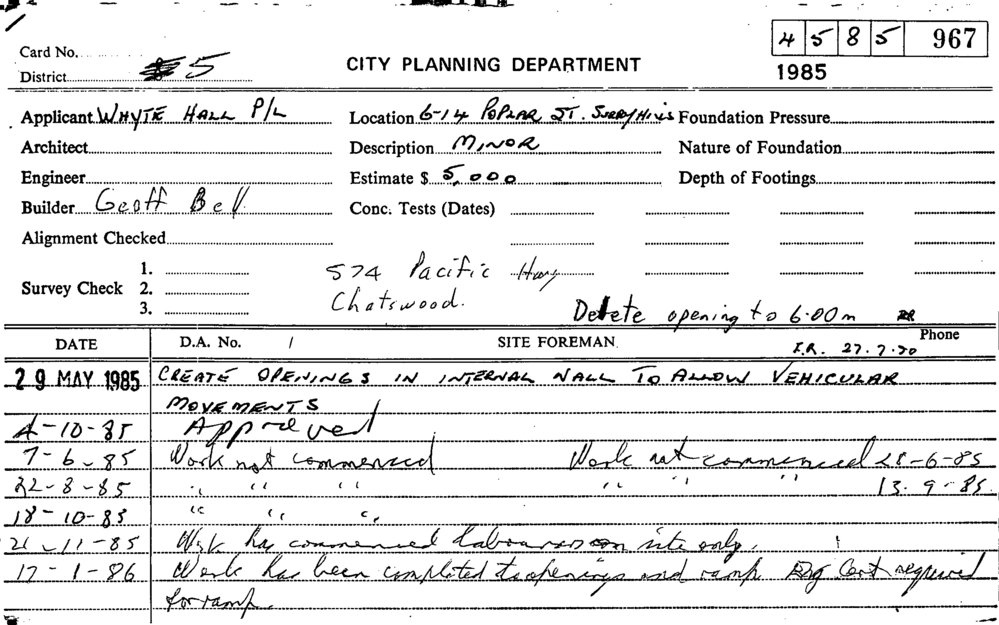 4 5 8 5 967
Card No.
1985
District 5
CITY PLANNING DEPARTMENT
Applicant WHYTE HALL P/L Location 6-14 POPLAR ST. SURRY HILLS Foundation Pressure
Architect Description MINOR Nature of Foundation
Engineer Estimate $ 5,000 Depth of Footings
Builder Geoff Bell Conc. Tests (Dates)
Alignment Checked
1.
Survey Check 2.
3.
574 Pacific Hwy
Chatswood.
Delete opening to 6.00m
DATE D.A. No. / SITE FOREMAN Phone
29 MAY 1985 CREATE OPENINGS IN INTERNAL WALL TO ALLOW VEHICULAR
MOVEMENTS
4-10-85 Approved
7-6-85 Work not commenced Work not commenced 28-6-85
22-8-85 " " " " " " 13.9-85.
18-10-85 " " "
21-11-85 Work has commenced labourers on site only.
17-1-86 Work has been completed to openings and ramp Eng Cert required
for ramp.